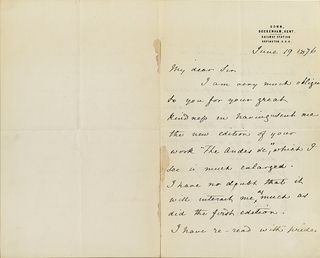 DOWN,
BECKENHAM, KENT.
RAILWAY STATION
ORPINGTON. S.E.R.
June 19 1876
My dear Sir
I am very much obliged
to you for your great
kindness in having sent me
the new edition of your
work "The Andes &c", which I
see is much enlarged.
I have no doubt that it
will interest me, as much as
did the first edition.
I have re-read with pride